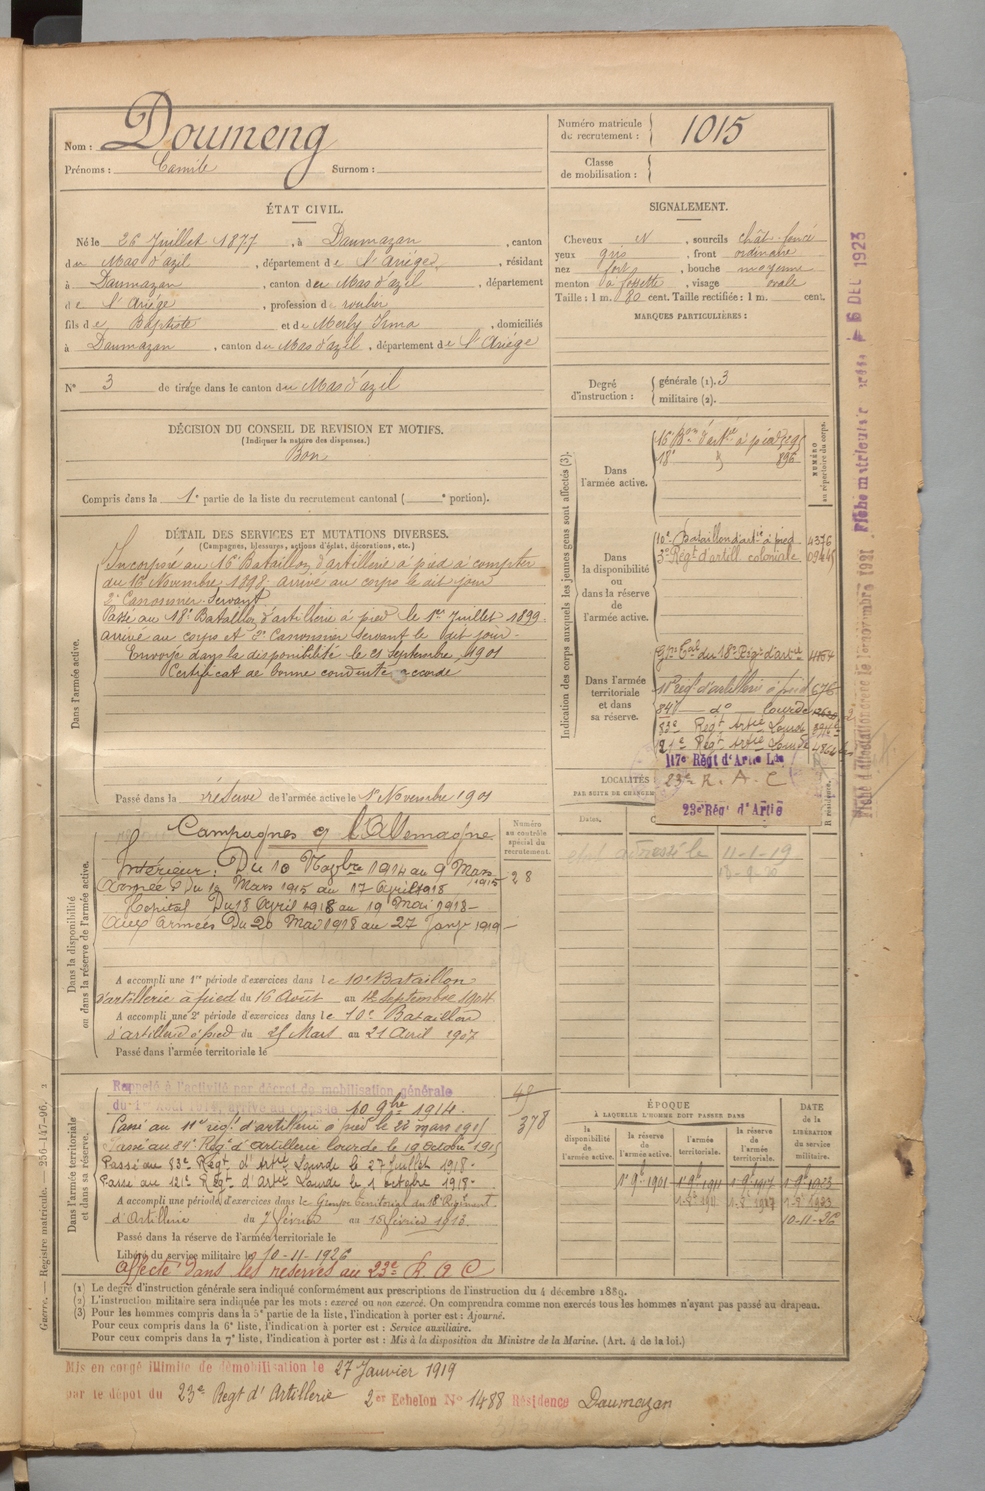 Nom : Doumeng
Prénoms : Camile Surnom :
Numéro matricule
du recrutement : 1015
Classe
de mobilisation :
ÉTAT CIVIL.
Né le 26 Juillet 1877, à Daumazan, canton
du Mas d'azil, département de l'Ariège, résidant
à Daumazan, canton du Mas d'azil, département
de l'Ariège, profession de
fils de Baptiste et de Merly Irma, domiciliés
à Daumazan, canton du Mas d'azil, département de l'Ariège
N° 3 de tirage dans le canton du Mas d'azil
SIGNALEMENT.
Cheveux N, sourcils chât. foncé
yeux gris, front ordinaire
nez fort, bouche moyenne
menton à fossette, visage ovale
Taille : 1 m. 80 cent. Taille rectifiée : 1 m. cent.
MARQUES PARTICULIÈRES :
Degré
d'instruction : générale (1). 3
militaire (2).
DÉCISION DU CONSEIL DE REVISION ET MOTIFS.
(Indiquer la nature des dispenses.)
Bon
Compris dans la 1e partie de la liste du recrutement cantonal ( e portion).
DÉTAIL DES SERVICES ET MUTATIONS DIVERSES.
(Campagnes, blessures, actions d'éclat, décorations, etc.)
Dans l'armée active.
Incorporé au 16e Bataillon d'artillerie à pied à compter
du 16 Novembre 1898. arrivé au corps le dit jour
2e Canonnier Servant
Passé au 18e Bataillon d'artillerie à pied le 1er Juillet 1899.
arrivé au corps et 2e Canonnier Servant le dit jour.
Envoyé dans la disponibilité le 21 Septembre 1901
Certificat de bonne conduite accordé
Passé dans la réserve de l'armée active le 1er Novembre 1901
Indication des corps auxquels les jeunes gens sont affectés (3).
NUMÉRO
au répertoire du corps.
Dans
l'armée active.
16e Bon d'art à pied
18e 896
Dans
la disponibilité
ou
dans la réserve
de
l'armée active.
10e Bataillon d'artie à pied 4376
3e Régt d'artill coloniale
Dans l'armée
territoriale
et dans
sa réserve.
du 18e Régt d'artie
11e Régt d'artillerie à pied 676
84e do Lourde
83e Régt Artie Lourde
121e Régt Artie Lourde
117e Régt d'Artie Lde
23e R. A. C
23e Rég d'Artie
LOCALITÉS
PAR SUITE DE CHANGEMENT
Dates.
état adressé le 11-1-19
Dans la disponibilité
ou dans la réserve de l'armée active.
Numéro
au contrôle
spécial du
recrutement.
28
Campagnes c/ l'Allemagne
Intérieur : Du 10 Novbre 1914 au 9 Mars 1915
Armées Du 10 Mars 1915 au 17 Avril 1918
Hôpital Du 18 Avril 1918 au 19 Mai 1918
Aux Armées Du 20 Mai 1918 au 27 Janv 1919
A accompli une 1re période d'exercices dans le 10e Bataillon
d'artillerie à pied du 16 Août au 12 Septembre 1904
A accompli une 2e période d'exercices dans le 10e Bataillon
d'artillerie à pied du 25 Mars au 21 Avril 1907
Passé dans l'armée territoriale le
Dans l'armée territoriale
et dans sa réserve.
Rappelé à l'activité par décret de mobilisation générale
du 1er Août 1914, arrivé au corps le 10 9bre 1914.
Passé au 11e rég. d'artillerie à pied le 23 mars 1915
Passé au 84e Régt d'Artillerie lourde le 19 Octobre 1915
Passé au 83e Régt d'Artie Lourde le 27 Juillet 1918.
Passé au 121e Régt d'Artie Lourde le 1 octobre 1918.
A accompli une période d'exercices dans le Groupe territorial du 18e Régiment
d'Artillerie du 7 février au 15 février 1913
Passé dans la réserve de l'armée territoriale le
Libéré du service militaire le 10-11-1926
Affecté dans les réserves au 23e R. A C
378
ÉPOQUE
À LAQUELLE L'HOMME DOIT PASSER DANS
la
disponibilité
de
l'armée active.
la réserve
de
l'armée active.
l'armée
territoriale.
la réserve
de
l'armée
territoriale.
DATE
de la
LIBÉRATION
du service
militaire.
1er 9bre 1901 1er 9bre 1911 1er 9bre 1917 1er 9bre 1923
10-11-26
(1) Le degré d'instruction générale sera indiqué conformément aux prescriptions de l'instruction du 4 décembre 1889.
(2) L'instruction militaire sera indiquée par les mots : exercé ou non exercé. On comprendra comme non exercés tous les hommes n'ayant pas passé au drapeau.
(3) Pour les hommes compris dans la 5e partie de la liste, l'indication à porter est : Ajourné.
Pour ceux compris dans la 6e liste, l'indication à porter est : Service auxiliaire.
Pour ceux compris dans la 7e liste, l'indication à porter est : Mis à la disposition du Ministre de la Marine. (Art. 4 de la loi.)
Mis en congé illimité de démobilisation le 27 Janvier 1919
par le dépôt du 23e Regt d'Artillerie 2er Echelon No 1488 Résidence Daumazan
Guerre. — Registre matricule. — 256-147-96.
6 DEC 1923